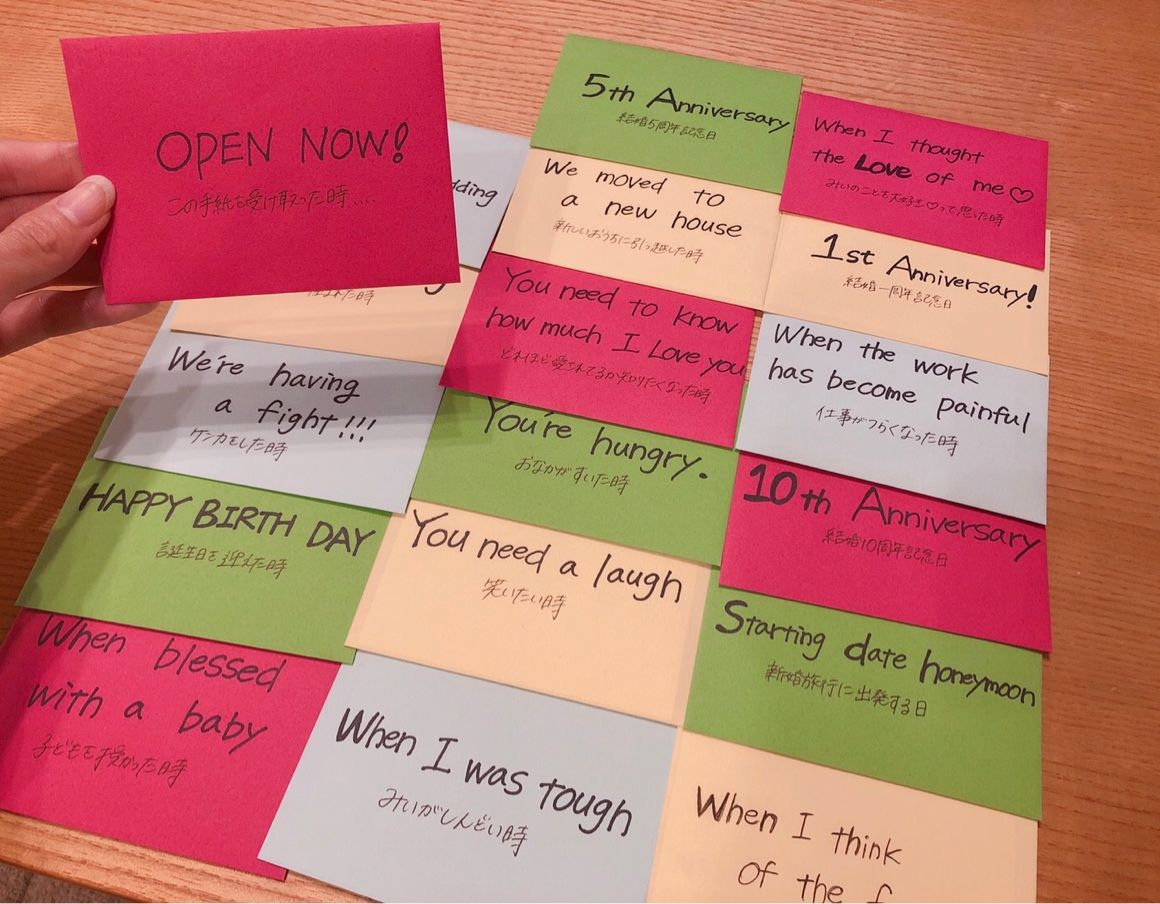 OPEN NOW!
この手紙を受け取った時....
dding
た時
We're having
a fight!!!
ケンカをした時
HAPPY BIRTH DAY
誕生日を迎えた時
When blessed
with a baby
子どもを授かった時
5th Anniversary
結婚5周年記念日
We moved to
a new house
新しいおうちに引っ越した時
You need to know
how much I Love you
どれほど愛されてるか知りたくなった時
You're hungry.
おなかがすいた時
You need a laugh
笑いたい時
When I was tough
みいがしんどい時
When I thought
the Love of me♡
みいのことを大好き♡って思った時
1st Anniversary!
結婚一周年記念日
When the work
has become painful
仕事がつらくなった時
10th Anniversary
結婚10周年記念日
Starting date honeymoon
新婚旅行に出発する日
When I think
of the f